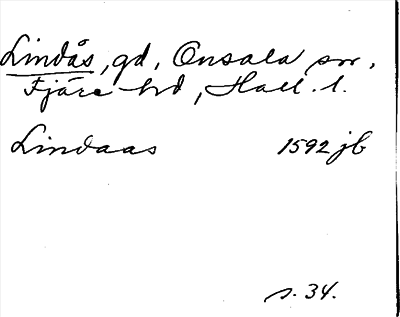 Lindås, gd, Onsala sn,
Fjäre hd, Hall. l.
Lindaas 1592 jb
s. 34.